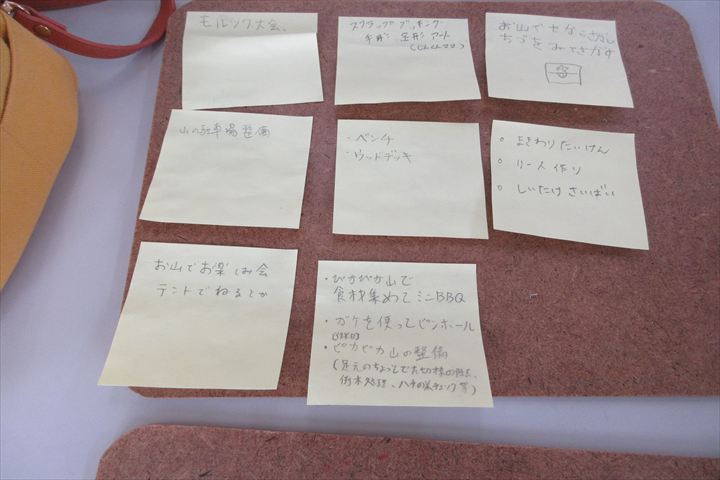 モルック大会、
スクラップブッキング
手形 足形 アート
お山でたからさがし
ちづをみてさがす
山の駐車場整備
・ベンチ
・ウッドデッキ
○ まきわりたいけん
○ リース作り
○ しいたけさいばい
お山でお楽しみ会
テントでねるとか
・ぴかぴか山で
食材集めてミニBBQ
・ガケを使ってピンホール
・ピカピカ山の整備
(足元のちょっとでた切株の除去、
倒木処理、ハチの巣チェック等)